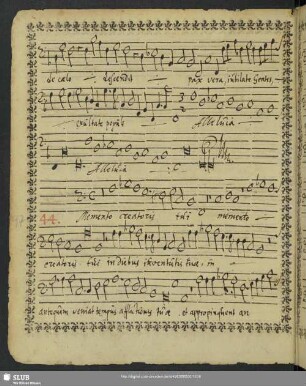 de cælo descendit pax vera, iubilate Gentes,
exultate populi Alleluia
Alleluia
44.
Memento creatoris tui memento
creatoris tui in diebus iuventutis tuæ, in
antequam veniat tempus afflictionis tuæ et appropinquent an
SLUB